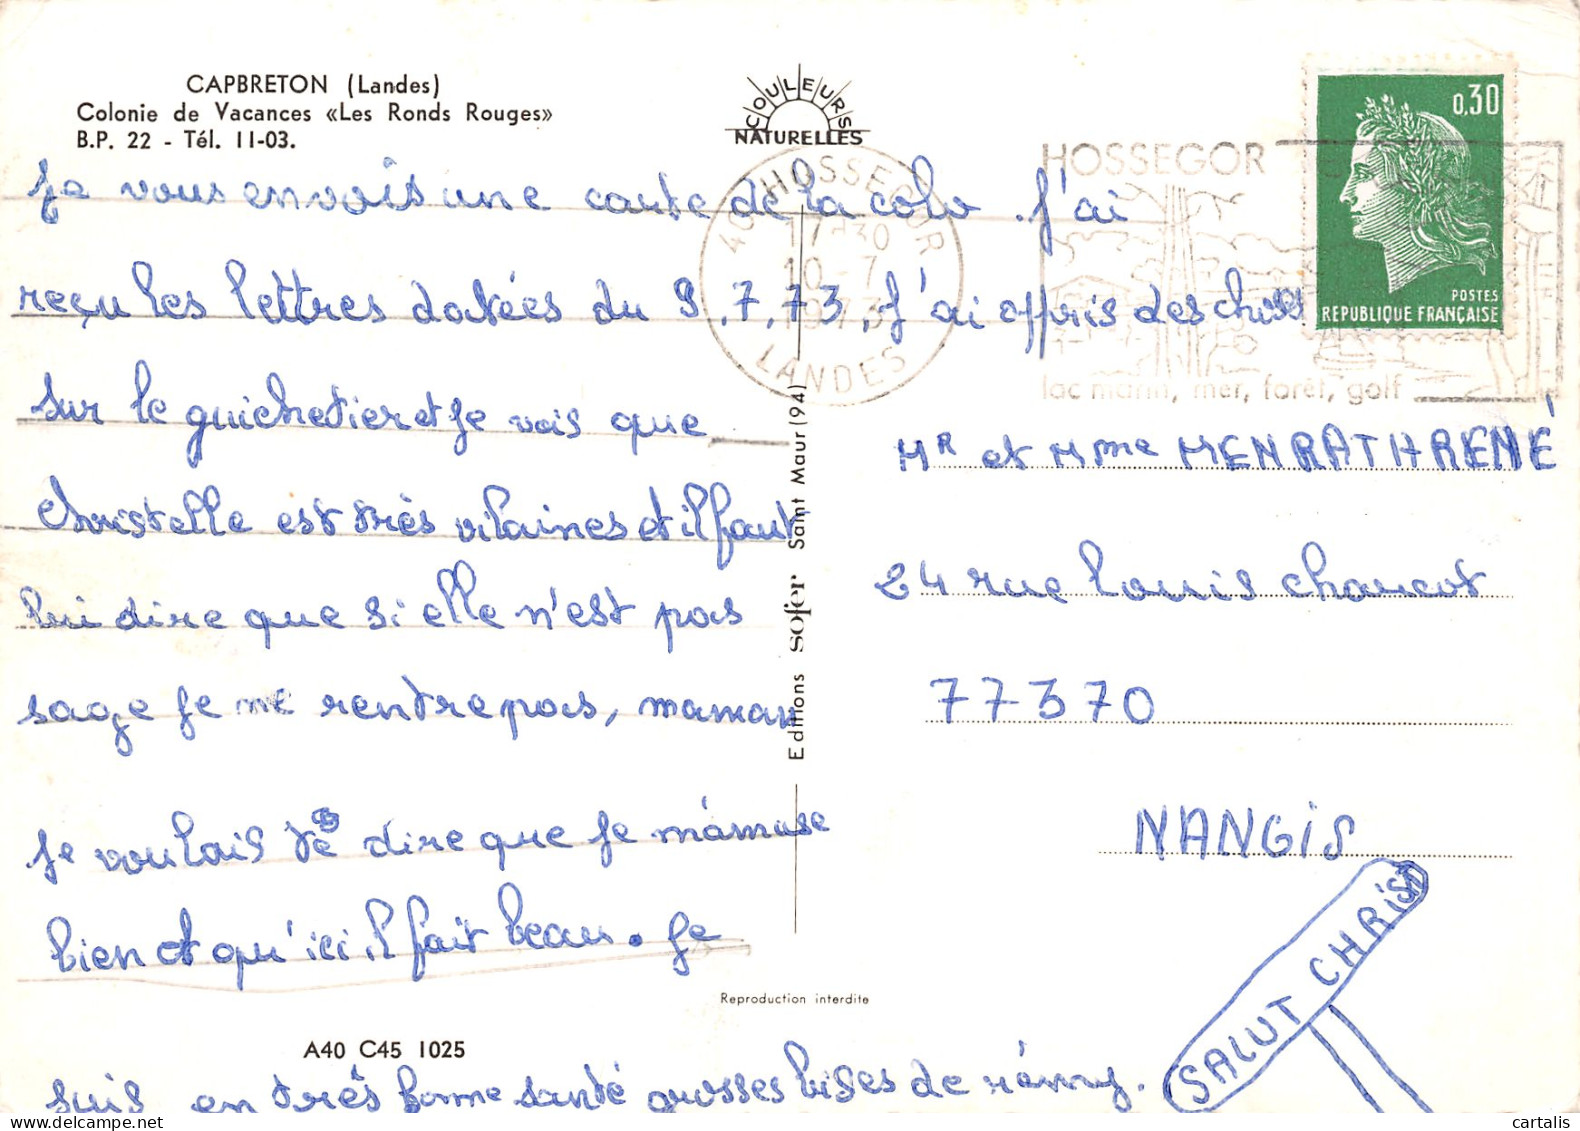 CAPBRETON (Landes)
Colonie de Vacances «Les Ronds Rouges»
B.P. 22 - Tél. 11-03.
COULEURS
NATURELLES
0,30
POSTES
REPUBLIQUE FRANÇAISE
40 HOSSEGOR
17H30
10-7
1973
LANDES
HOSSEGOR
lac marin, mer, forêt, golf
Je vous envois une carte de la colo . J'ai
reçu les lettres datées du 9.7.73, J'ai appris des choses
sur le guichetier et Je vois que
Christelle est très vilaines et il faut
lui dire que si elle n'est pas
sage Je me rentre pas, maman
Je voulais te dire que Je m'amuse
bien et qu'ici il fait beau. Je
suis en très bonne santé grosses bises de rémy.
Mr et Mme MENRATH RENÉ
24 rue louis charcot
77370
NANGIS
SALUT CHRIS
Editions sofer Saint Maur (94)
Reproduction interdite
A40 C45 1025
cartalis